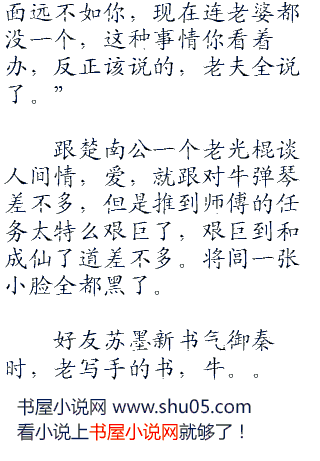 面远不如你，现在连老婆都
没一个，这种事情你看着
办，反正该说的，老夫全说
了。”
跟楚南公一个老光棍谈
人间情，爱，就跟对牛弹琴
差不多，但是推到师傅的任
务太特么艰巨了，艰巨到和
成仙了道差不多。将闾一张
小脸全都黑了。
好友苏墨新书气御秦
时，老写手的书，牛。。
书屋小说网 www.shu05.com
看小说上书屋小说网就够了！